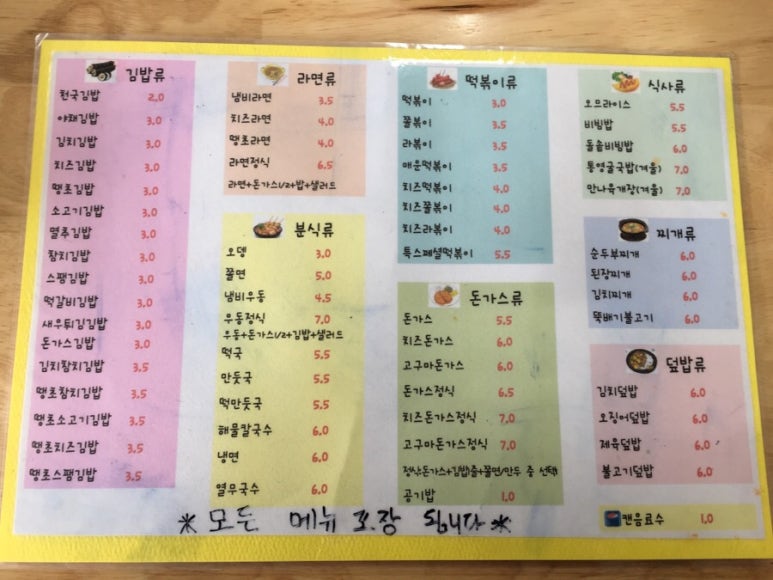 김밥류
천국김밥 2.0
야채김밥 3.0
김치김밥 3.0
치즈김밥 3.0
땡초김밥 3.0
소고기김밥 3.0
멸추김밥 3.0
참치김밥 3.0
스팸김밥 3.0
떡갈비김밥 3.0
새우튀김김밥 3.0
돈가스김밥 3.0
김치참치김밥 3.5
땡초참치김밥 3.5
땡초소고기김밥 3.5
땡초치즈김밥 3.5
땡초스팸김밥 3.5
라면류
냄비라면 3.5
치즈라면 4.0
땡초라면 4.0
라면정식 6.5
라면+돈가스1/2+밥+샐러드
분식류
오뎅 3.0
쫄면 5.0
냄비우동 4.5
우동정식 7.0
우동+돈가스1/2+김밥+샐러드
떡국 5.5
만둣국 5.5
떡만둣국 5.5
해물칼국수 6.0
냉면 6.0
열무국수 6.0
떡볶이류
떡볶이 3.0
쫄볶이 3.5
라볶이 3.5
매운떡볶이 3.5
치즈떡볶이 4.0
치즈쫄볶이 4.0
치즈라볶이 4.0
특스페셜떡볶이 5.5
돈가스류
돈가스 5.5
치즈돈가스 6.0
고구마돈가스 6.0
돈가스정식 6.5
치즈돈가스정식 7.0
고구마돈가스정식 7.0
정식:돈가스+김밥줄+쫄면/만두 중 선택
공기밥 1.0
식사류
오므라이스 5.5
비빔밥 5.5
돌솥비빔밥 6.0
통영굴국밥(겨울) 7.0
만나육개장(겨울) 7.0
찌개류
순두부찌개 6.0
된장찌개 6.0
김치찌개 6.0
뚝배기불고기 6.0
덮밥류
김치덮밥 6.0
오징어덮밥 6.0
제육덮밥 6.0
불고기덮밥 6.0
캔음료수 1.0
*모든 메뉴 포장 됩니다*